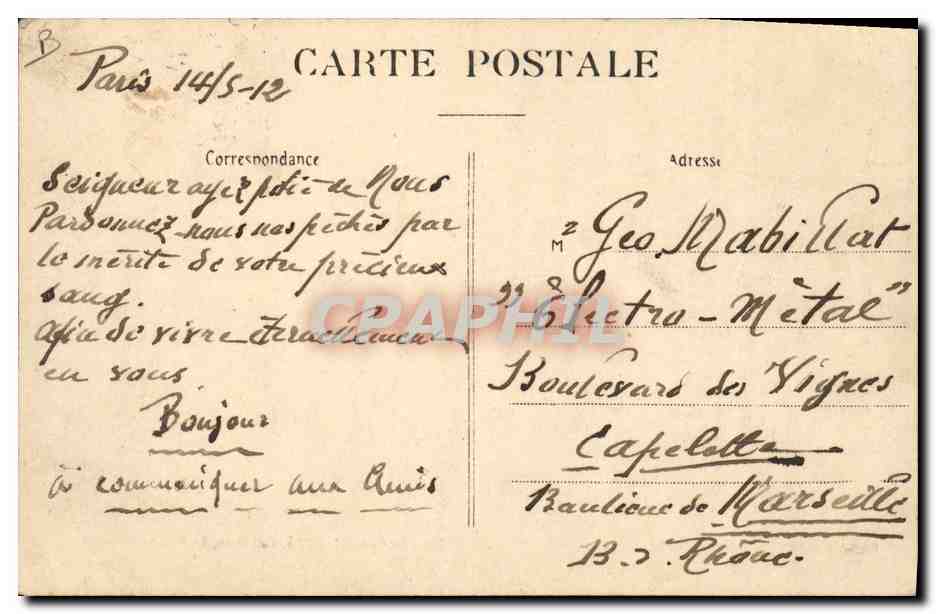 B
CARTE POSTALE
Paris 14/5-12
Correspondance
Seigneur ayez pitié de Nous
Pardonnez-nous nos péchés par
le mérite de votre précieux
sang.
afin de vivre éternellement
en vous.
Bonjour
à communiquer aux Amis
Adresse
M Geo Mabillat
"Electro-Métal"
Boulevard des Vignes
Capelette
Banlieue de Marseille
B. d. Rhône.
CRAPHIL